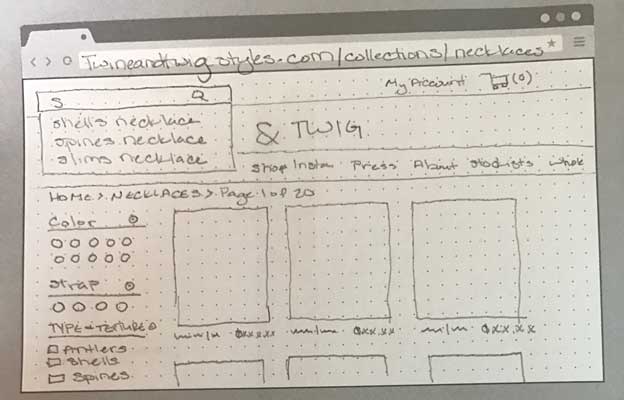 Twineandtwigstyles.com/collections/necklaces
My Account (0)
S
shells necklace
spines necklace
slims necklace
& TWIG
Shop Insta Press About Stockists Whole
Home > Necklaces > Page 1 of 20
Color
Strap
Type + Texture
Antlers
Shells
Spines
$xx.xx $xx.xx $xx.xx